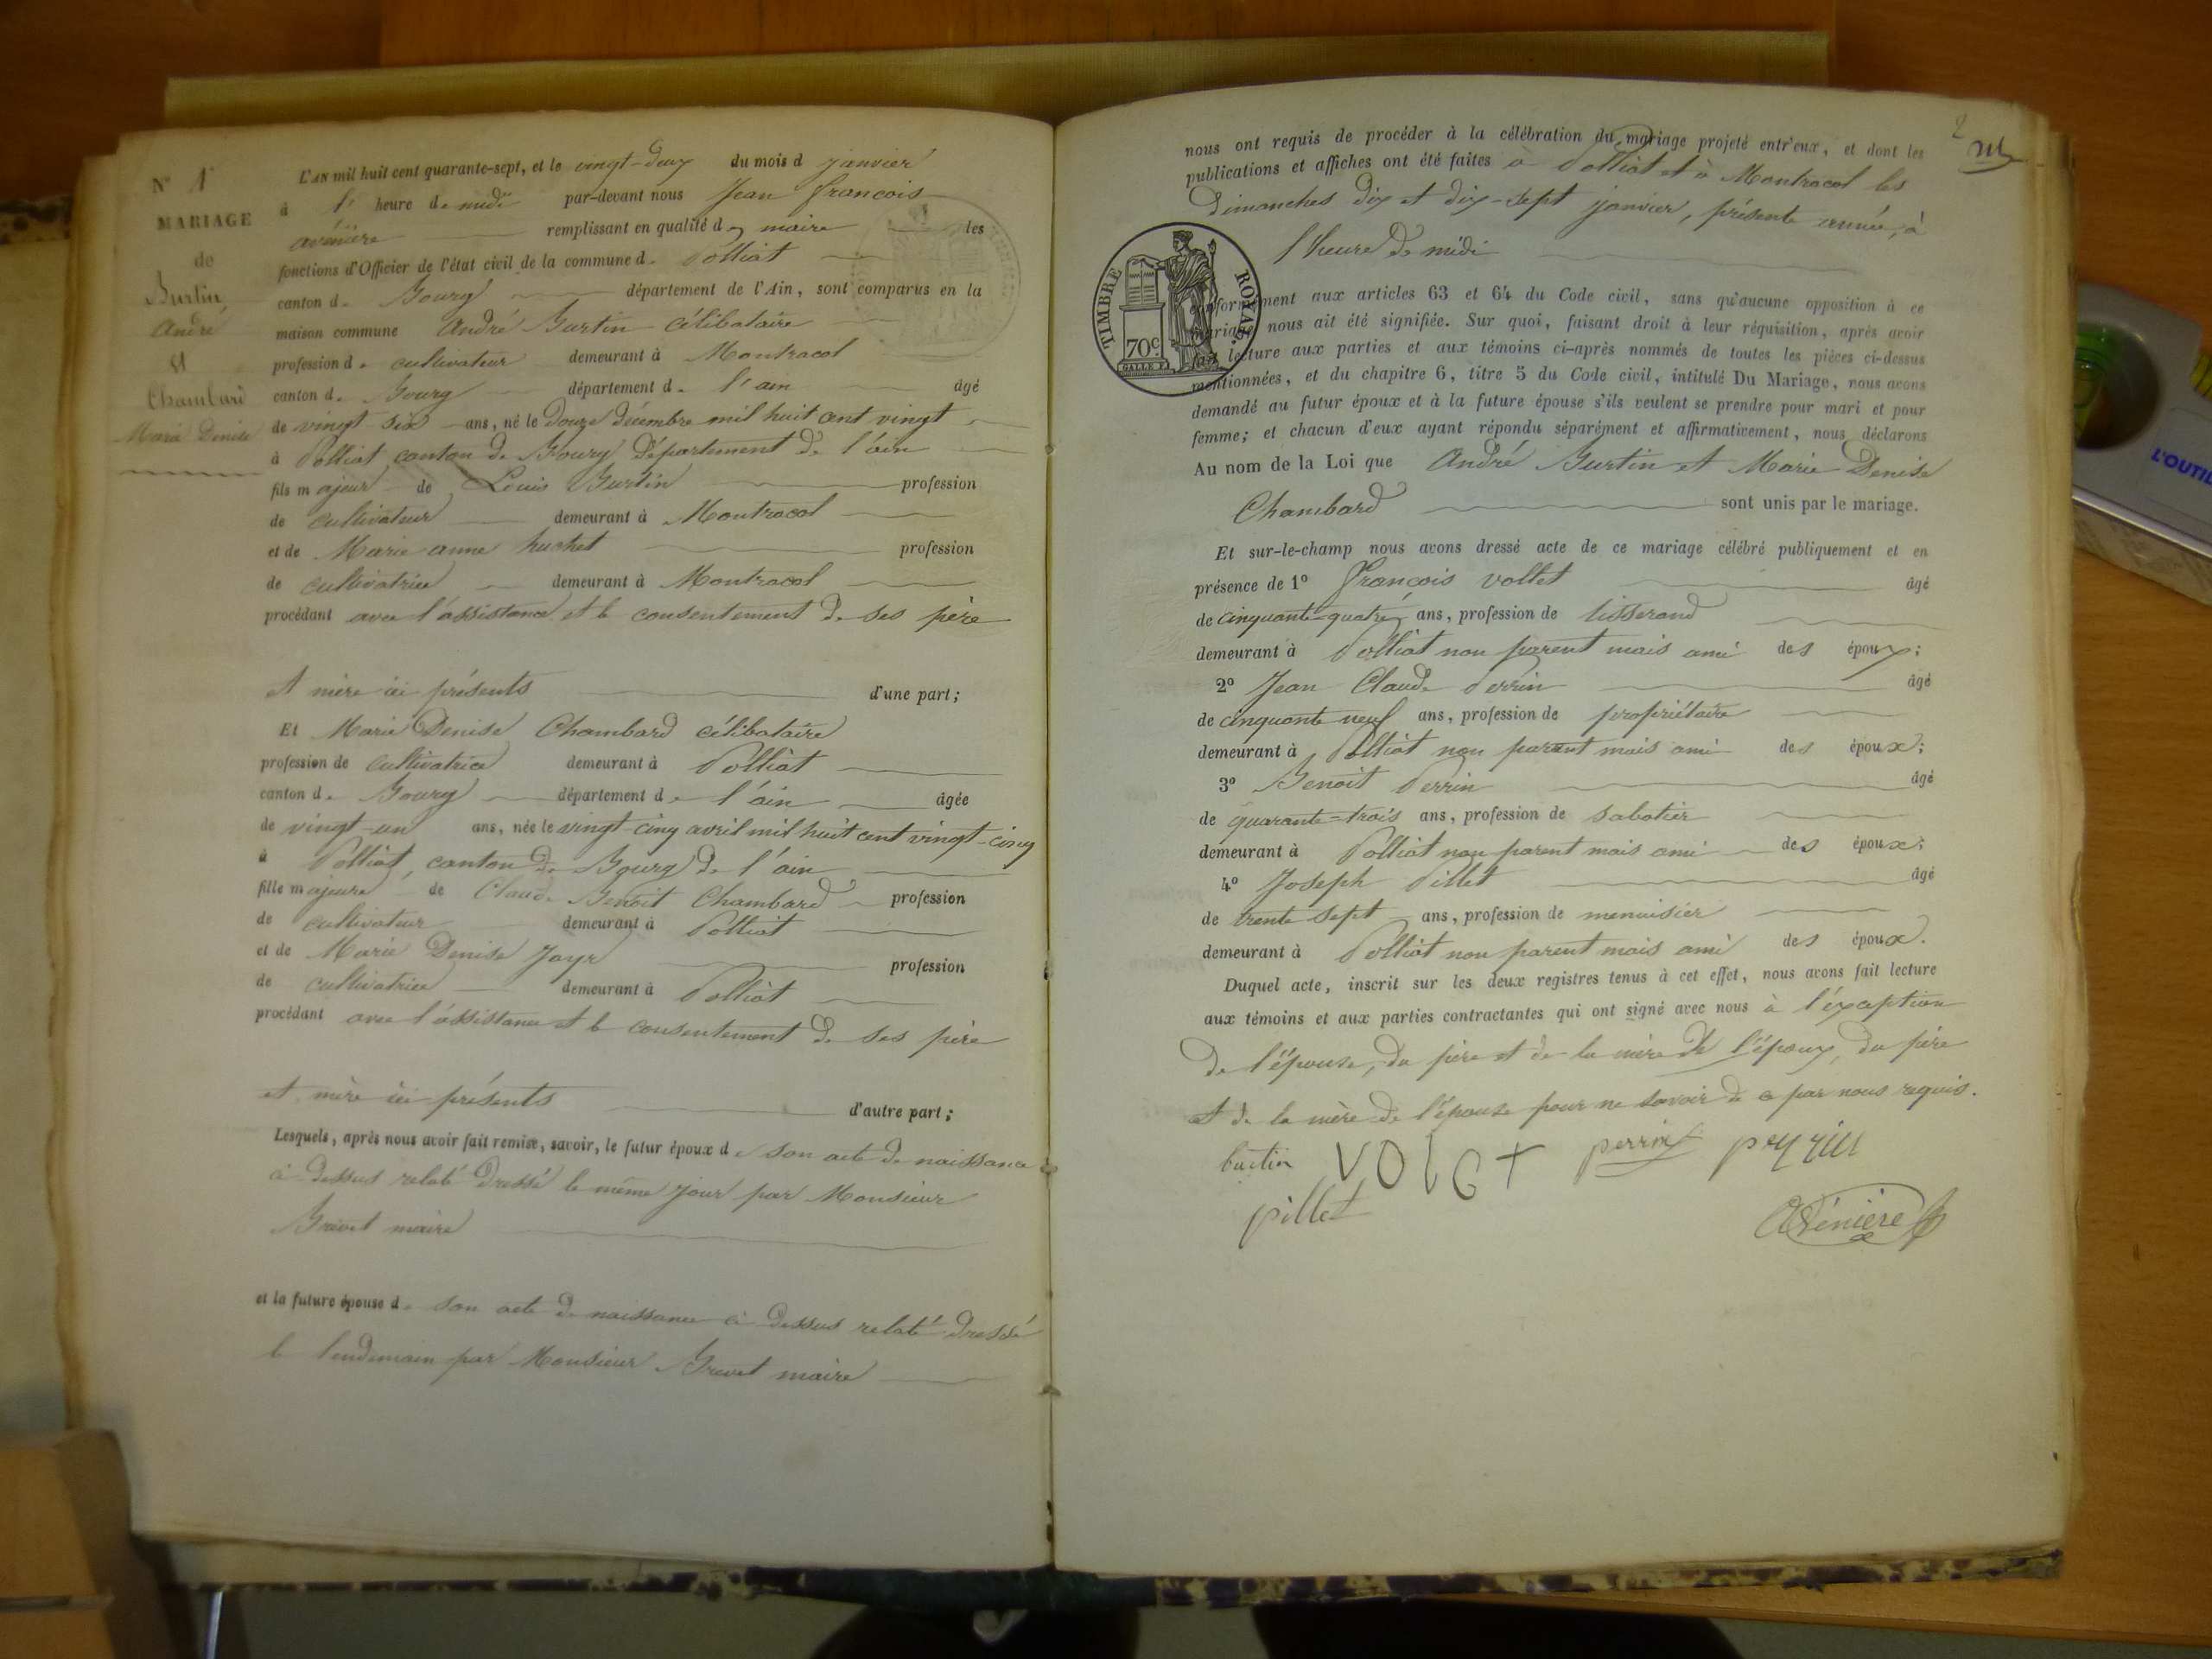 N° 1
MARIAGE
de
Burtin
André
et
Chambard
Marie Denise
L'AN mil huit cent quarante-sept, et le vingt-deux du mois d janvier
à l' heure de midi par-devant nous Jean françois
avénière remplissant en qualité de maire les
fonctions d'Officier de l'état civil de la commune de Polliat
canton de Bourg département de l'Ain, sont comparus en la
maison commune André Burtin célibataire
profession de cultivateur demeurant à Montracol
canton de Bourg département de l'ain âgé
de vingt six ans, né le douze décembre mil huit cent vingt
à Polliat canton de Bourg département de l'ain
fils majeur de Louis Burtin profession
de cultivateur demeurant à Montracol
et de Marie anne huchet profession
de cultivatrice demeurant à Montracol
procédant avec l'assistance et le consentement de ses père
et mère ici présents d'une part;
Et Marie Denise Chambard célibataire
profession de cultivatrice demeurant à Polliat
canton de Bourg département de l'ain âgée
de vingt-un ans, née le vingt-cinq avril mil huit cent vingt-cinq
à Polliat, canton de Bourg de l'ain
fille majeure de Claude Benoit Chambard profession
de cultivateur demeurant à Polliat
et de Marie Denise Joyr profession
de cultivatrice demeurant à Polliat
procédant avec l'assistance et le consentement de ses père
et mère ici présents d'autre part;
Lesquels, après nous avoir fait remise, savoir, le futur époux de son acte de naissance
ci dessus relaté dressé le même jour par Monsieur
Grivet maire
et la future épouse de son acte de naissance ci dessus relaté dressé
le lendemain par Monsieur Grivet maire
2
nous ont requis de procéder à la célébration du mariage projeté entr'eux, et dont les
publications et affiches ont été faites à Polliat et à Montracol les
Dimanches dix et dix-sept janvier, présente année, à
l'heure de midi
TIMBRE ROYAL
70c
GALLE F.
conformément aux articles 63 et 64 du Code civil, sans qu'aucune opposition à ce
mariage nous ait été signifiée. Sur quoi, faisant droit à leur réquisition, après avoir
fait lecture aux parties et aux témoins ci-après nommés de toutes les pièces ci-dessus
mentionnées, et du chapitre 6, titre 5 du Code civil, intitulé Du Mariage, nous avons
demandé au futur époux et à la future épouse s'ils veulent se prendre pour mari et pour
femme; et chacun d'eux ayant répondu séparément et affirmativement, nous déclarons
Au nom de la Loi que André Burtin et Marie Denise
Chambard sont unis par le mariage.
Et sur-le-champ nous avons dressé acte de ce mariage célébré publiquement et en
présence de 1° françois vollet âgé
de cinquante-quatre ans, profession de tisserand
demeurant à Polliat non parent mais ami des époux;
2° Jean Claude Perrin âgé
de cinquante neuf ans, profession de propriétaire
demeurant à Polliat non parent mais ami des époux;
3° Benoit Perrin âgé
de quarante-trois ans, profession de sabotier
demeurant à Polliat non parent mais ami des époux;
4° Joseph Pillet âgé
de trente sept ans, profession de menuisier
demeurant à Polliat non parent mais ami des époux.
Duquel acte, inscrit sur les deux registres tenus à cet effet, nous avons fait lecture
aux témoins et aux parties contractantes qui ont signé avec nous à l'éxception
de l'épouse, du père et de la mère de l'époux, du père
et de la mère de l'épouse pour ne savoir de ce par nous requis.
burtin VOLET perrin perrin
pillet Avénière
L'OUTIL